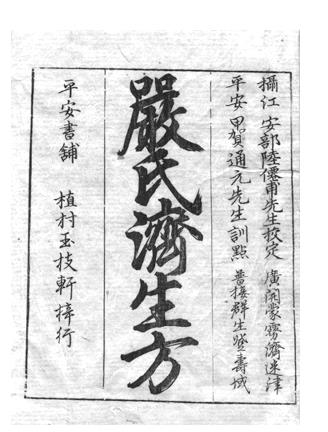 攝江 安部陸僊甫先生挍定 廣開蒙霧濟迷津
平安 甲賀通元先生訓點 普接群生登壽域
嚴氏濟生方
平安書舖 植村玉枝軒梓行